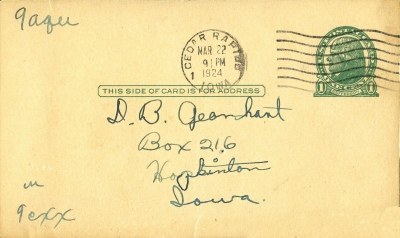 9aqu
CEDAR RAPIDS
MAR 22
9 PM
1 1924
IOWA
THIS SIDE OF CARD IS FOR ADDRESS
1 1
D. B. Gearhart
Box 216
Hopkinton
Iowa.
in
9exx